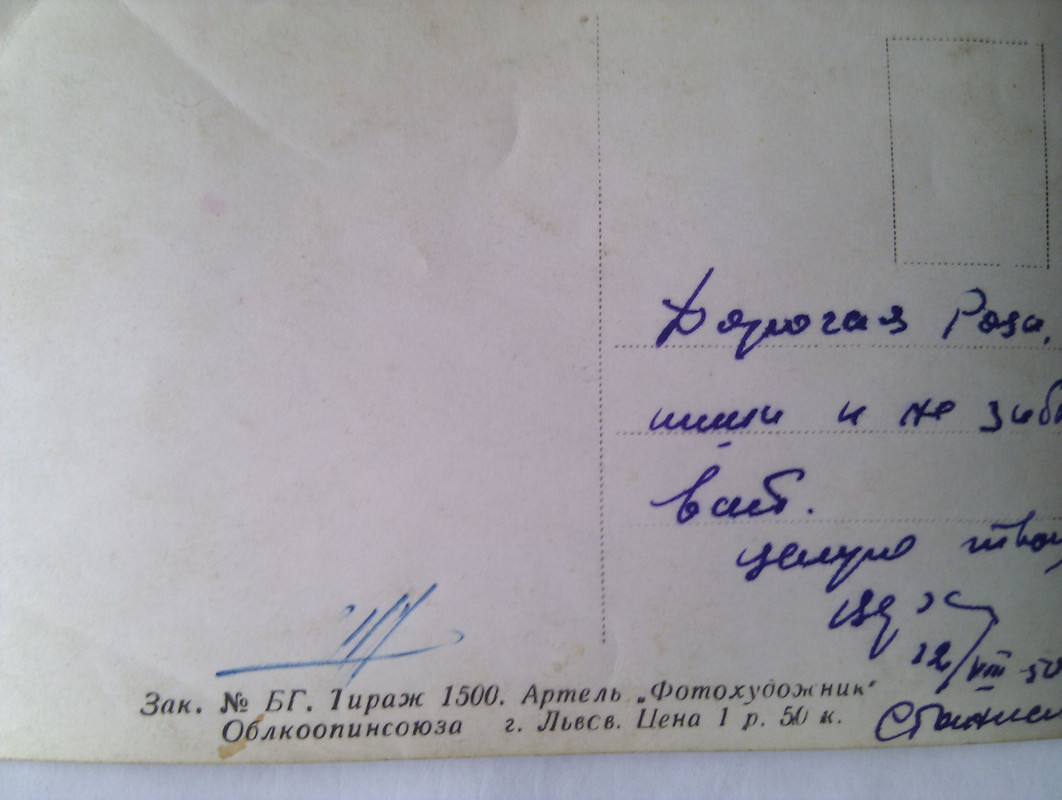 Дорогая Роза,
пиши и не забы
вай.
целую твоя
12/VIII-50
Зак. № БГ. Тираж 1500. Артель „Фотохудожник"
Облкоопинсоюза г. Львсв. Цена 1 р. 50 к.